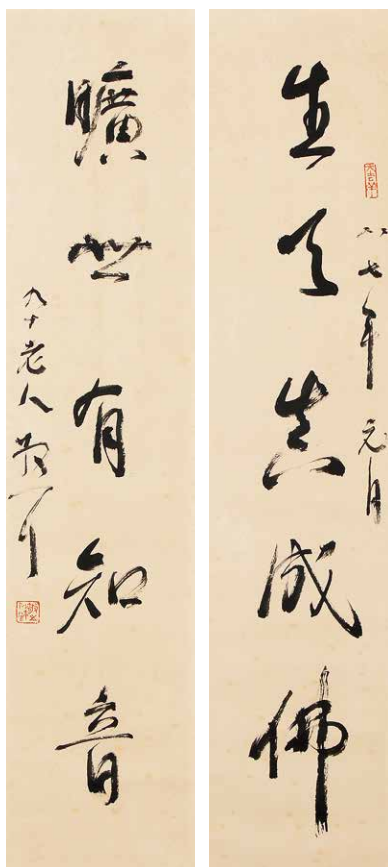 生天真成佛
八七年元月
曠世有知音
九十老人散耳